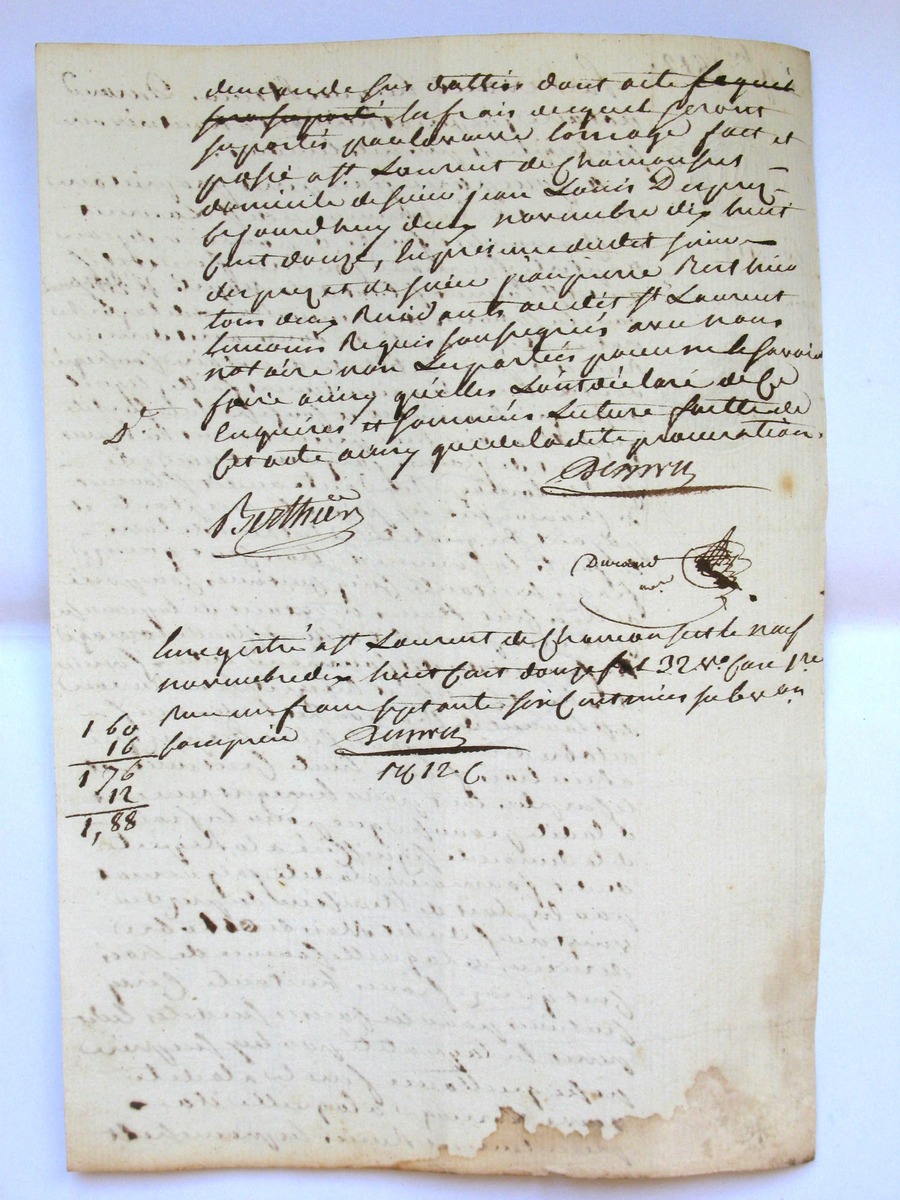 demande sus dattée dont acte lequel
sera suporté les frais duquel seront
suportés par la veuve Lomage fait et
passé a st Laurent de Chamousset
domicile de sieur jean Louis Desprez
cejourdhuy deux novembre dix huit
cent douze, En présence dudit sieur
desprez et de sieur jean pierre Berthier
tous deux Résidants au dit st Laurent
temoins Requis soussignés avec nous
notaire non les parties pour ne le savoir
faire ainsy qu'elles L'ont déclaré de Ce
Enquises et sommées Lecture faitte de
Cet acte ainsy que de la dite procuration.
Berthier
Durand
nre
Enregistré a st Laurent de Chamousset le neuf
novembre dix huit Cent douze fol 32 vo Case 1re
Reçu un franc septante six Centimes subvon
comprise
1 60
16
1 76
12
1,88